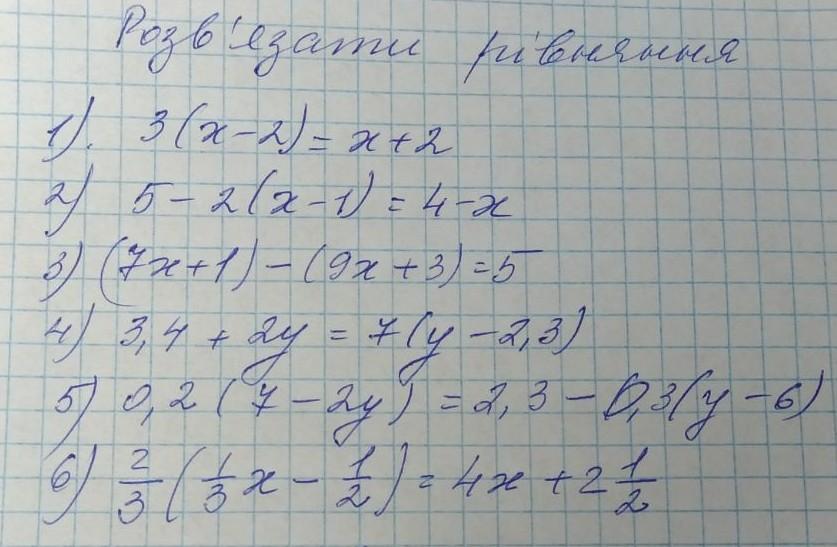 Розв'язати рівняння
1). 3(x-2)=x+2
2) 5-2(x-1)=4-x
3) (7x+1)-(9x+3)=5
4) 3,4+2y=7(y-2,3)
5) 0,2(7-2y)=2,3-0,3(y-6)
6) 2/3(1/3x-1/2)=4x+2 1/2